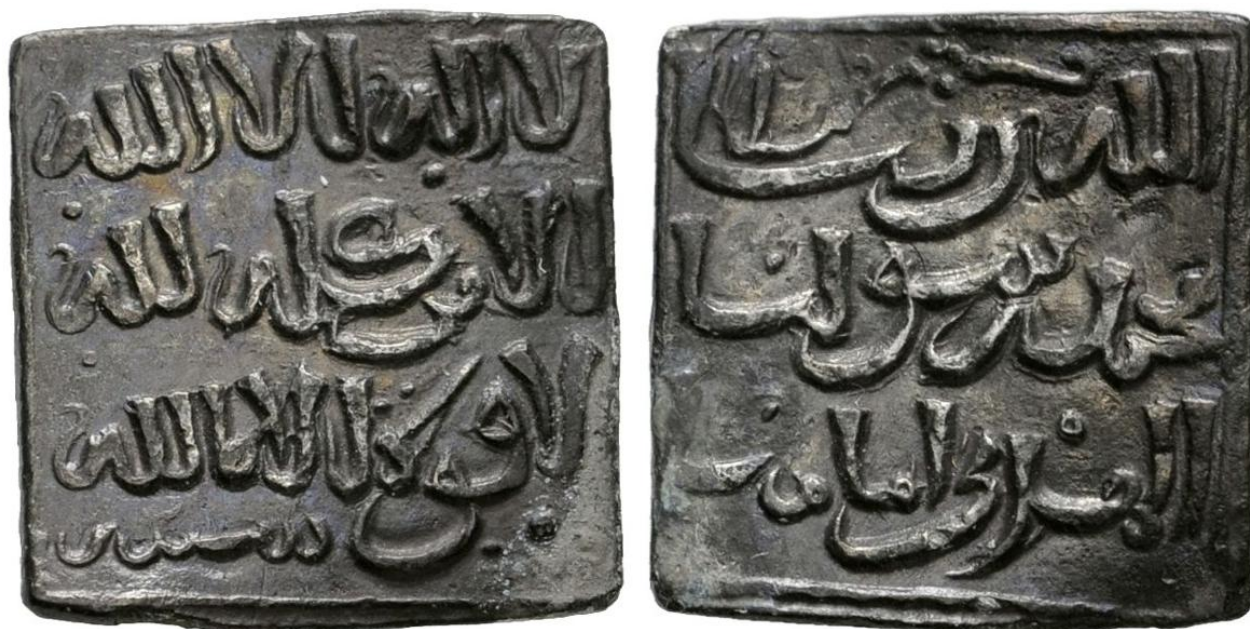 لا اله الا الله
الامر كله لله
لا قوة الا بالله
الله ربنا
محمد رسولنا
القران امامنا